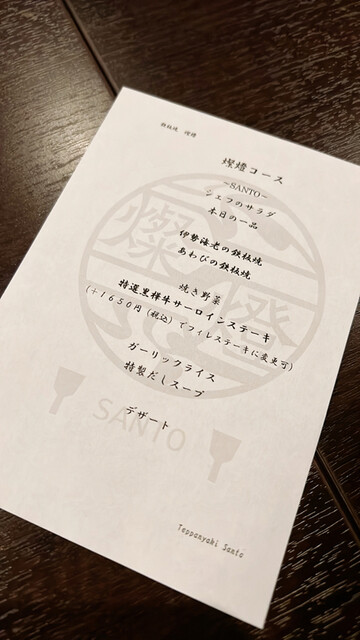 鉄板焼 燦燈
燦燈コース
−SANTO−
シェフのサラダ
本日の一品
伊勢海老の鉄板焼
あわびの鉄板焼
焼き野菜
特選黒樺牛サーロインステーキ
(＋1650円(税込)でフィレステーキに変更可)
ガーリックライス
特製だしスープ
デザート
燦燈
SANTO
Teppanyaki Santo